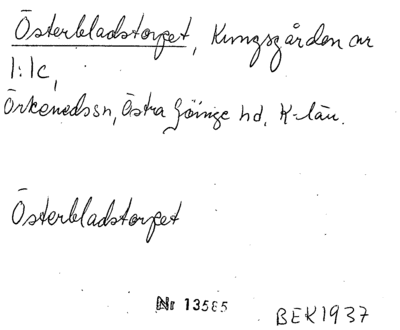 Österbladstorpet, Kungsgården nr
1:1c,
Örkenedssn, Östra Göinge hd, K-län.
Österbladstorpet
Nr 13585
BEK1937